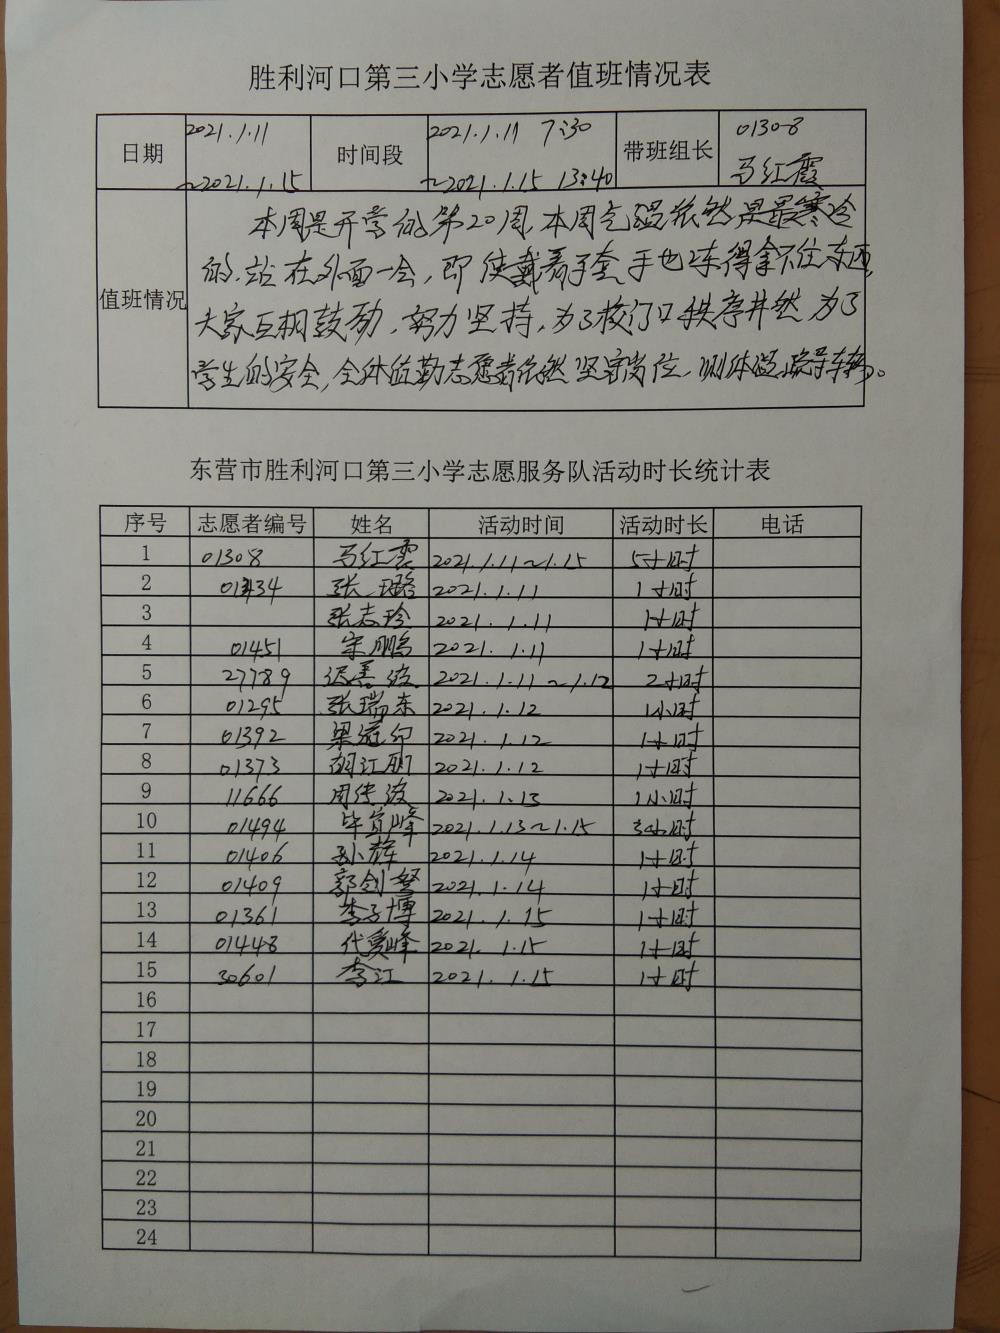 胜利河口第三小学志愿者值班情况表
日期 2021.1.11 ~2021.1.15 时间段 2021.1.11 7:30 ~2021.1.15 13:40 带班组长 01308 马红霞
值班情况
本周是开学的第20周,本周气温依然是最寒冷
的,站在外面一会,即使戴着手套手也冻得拿不住东西,
大家互相鼓励,努力坚持,为了校门口秩序井然,为了
学生的安全,全体值勤志愿者依然坚守岗位,测体温,疏导车辆。
东营市胜利河口第三小学志愿服务队活动时长统计表
序号 志愿者编号 姓名 活动时间 活动时长 电话
1 01308 马红霞 2021.1.11~1.15 5小时
2 01434 张璐 2021.1.11 1小时
3 张志珍 2021.1.11 1小时
4 01451 宋鹏 2021.1.11 1小时
5 27789 迟善波 2021.1.11~1.12 2小时
6 01295 张瑞东 2021.1.12 1小时
7 01392 梁 2021.1.12 1小时
8 01373 胡江 2021.1.12 1小时
9 11666 周传波 2021.1.13 1小时
10 01494 毕 峰 2021.1.13~1.15 3小时
11 01406 孙辉 2021.1.14 1小时
12 01409 郭剑 2021.1.14 1小时
13 01361 李子博 2021.1.15 1小时
14 01448 代 峰 2021.1.15 1小时
15 30601 李江 2021.1.15 1小时
16
17
18
19
20
21
22
23
24